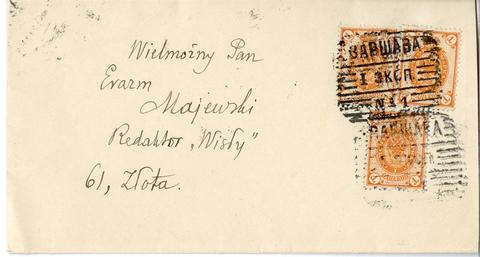 Wielmożny Pan
Erazm
Majewski
Redaktor „Wisły"
61, Złota.
ВАРШАВА
1 ЭКСП
№ 1
ВАРШАВА